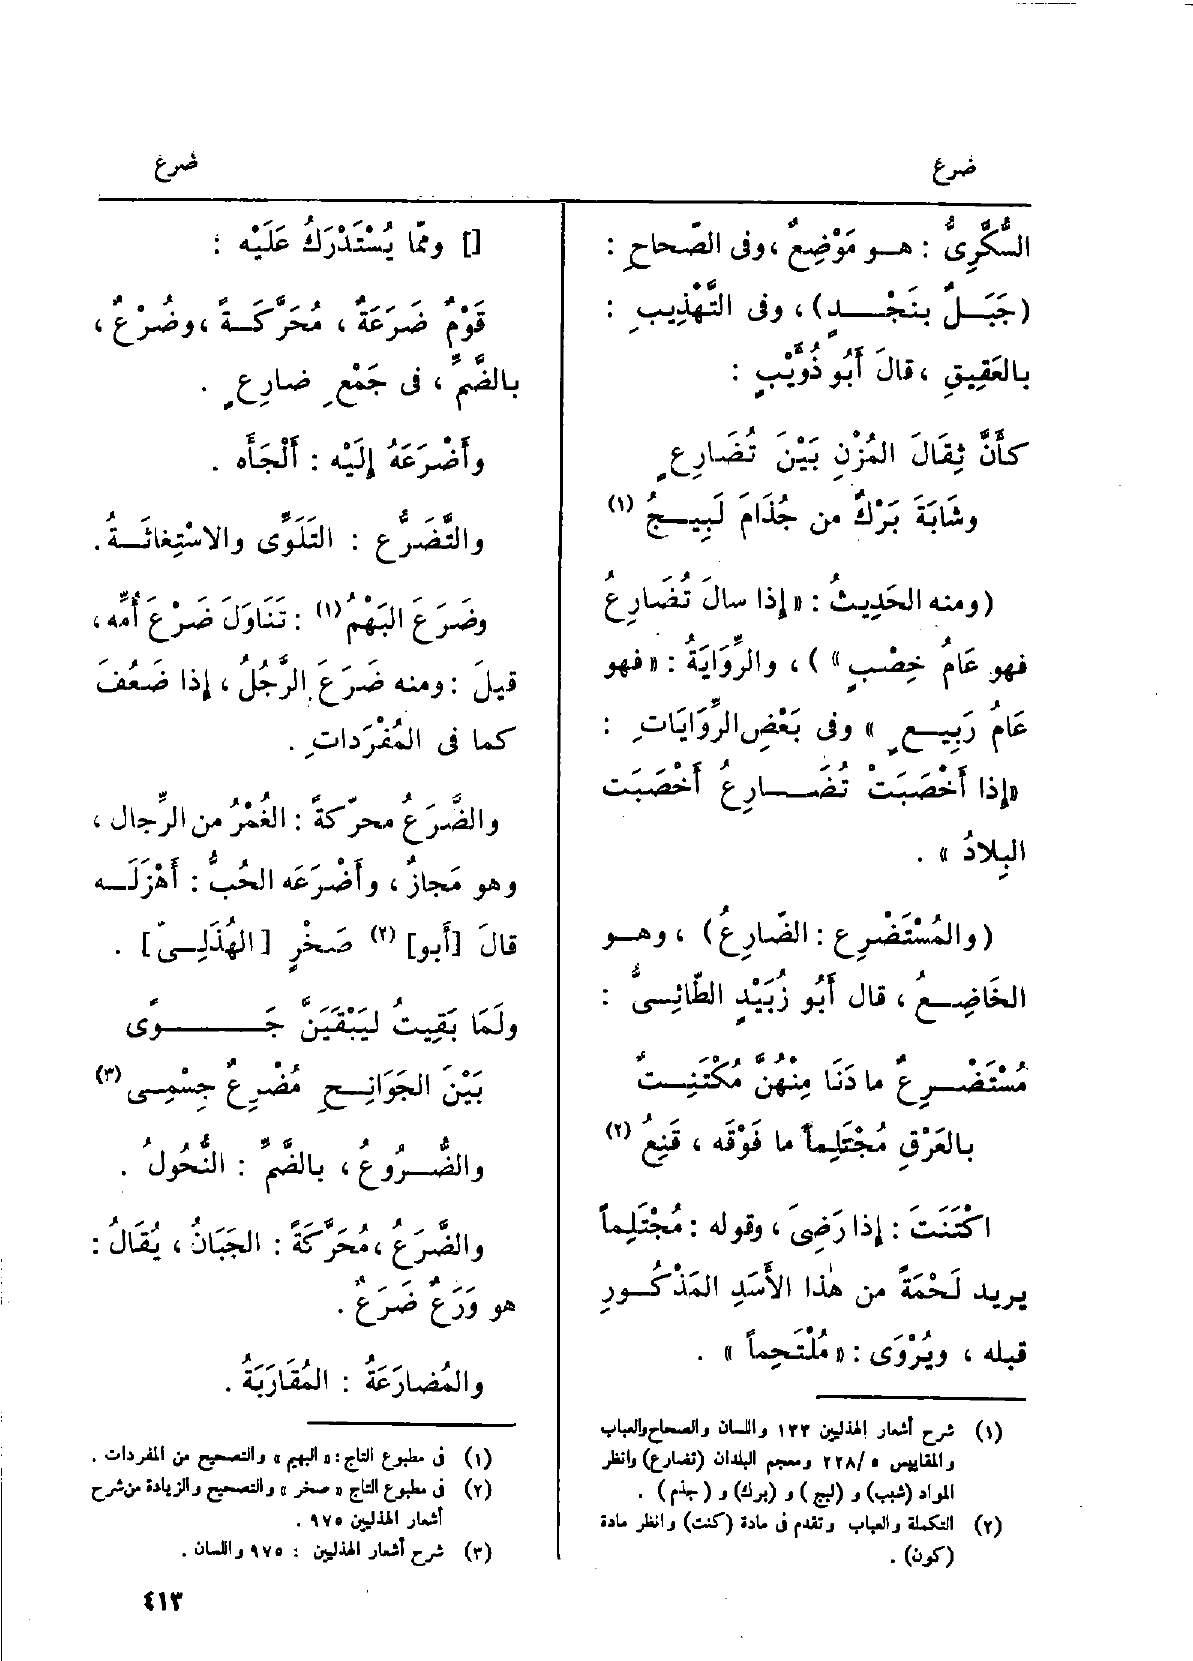 ضرع
ضرع
السُّكَّرِىُّ : هـو مَوْضِعٌ ، وفى الصّحاح :
(جَبَـلٌ بنَجْـــدٍ) ، وفى التَّهْذِيبِ :
بالعَقِيقِ ، قالَ أَبُو ذُؤَيْبٍ :
كأَنَّ ثِقَالَ المُزْنِ بَيْنَ تُضَارِعٍ
وشَابَةَ بَرْكٌ من جُذَامَ لَبِيـجُ (١)
(ومنه الحَدِيثُ : «إذا سالَ تُضَارِعُ
فهو عَامُ خِصْبٍ» ) ، والرِّوَايَةُ : «فهو
عَامُ رَبِيـعٍ » وفى بَعْضِ الرِّوَايَاتِ :
«إذا أَخْصَبَتْ تُضَـــارِعُ أَخْصَبَت
البِلادُ » .
(والمُسْتَضْرِع : الضّارِعُ) ، وهـو
الخَاضِـعُ ، قال أَبُو زُبَيْدٍ الطّائِـىُّ :
مُسْتَضْـرِعٌ ما دَنَا مِنْهُنَّ مُكْتَنِـتٌ
بالعَرْقِ مُجْتَلِماً ما فَوْقَه ، قَنِعُ (٢)
اكْتَنَتَ : إذا رَضِىَ ، وقوله : مُجْتَلِماً
يريد لَحْمَةً من هٰذا الأَسَدِ المَذْكُـورِ
قبله ، ويُرْوَى : «مُلْتَحِماً » .
(١) شرح أشعار الهذليين ١٣٣ واللسان والصحاح والعباب
والمقاييس ٥ /٢٢٨ ومعجم البلدان (تضارع) وانظر
المواد (شبب) و (لبج) و (برك) و (جذم) .
(٢) التكملة والعباب وتقدم فى مادة (كنت) وانظر مادة
(كون) .
[] وممّا يُسْتَدْرَكُ عَلَيْه :
قَوْمٌ ضَرَعَةٌ ، مُحَرَّكَـةً ، وضُرْعٌ ،
بالضَّمِّ ، فى جَمْعِ ضارِعٍ .
وأَضْرَعَهُ إلَيْه : أَلْجَأَه .
والتَّضَرُّع : التَلَوِّى والاسْتِغاثَـةُ .
وضَرَعَ البَهْمُ (١) : تَنَاوَلَ ضَرْعَ أُمِّه ،
قيلَ : ومنه ضَرَعَ الرَّجُلُ ، إذا ضَعُفَ
كما فى المُفْرَداتِ .
والضَّرَعُ محرّكةً : الغُمْرُ من الرِّجال ،
وهو مَجازٌ ، وأَضْرَعَه الحُبُّ : أَهْزَلَـه
قالَ [أبو] (٢) صَخْرٍ [الهُذَلِـىّ] .
ولَمَا بَقِيتُ لَيَبْقَيَنَّ جَــــــوًى
بَيْنَ الجَوَانِـحِ مُضْرِعٌ جِسْمِـى (٣)
والضُّــرُوعُ ، بالضَّمِّ : النُّحُولُ .
والضَّرَعُ ، مُحَرَّكَةً : الجَبَانُ ، يُقَالُ :
هو وَرَعٌ ضَرَعٌ .
والمُضارَعَةُ : المُقَارَبَةُ .
(١) فى مطبوع التاج : « البهيم » والتصحيح من المفردات .
(٢) فى مطبوع التاج « صخر » والتصحيح والزيادة من شرح
أشعار الهذليين ٩٧٥ .
(٣) شرح أشعار الهذليين : ٩٧٥ واللسان .
٤١٣